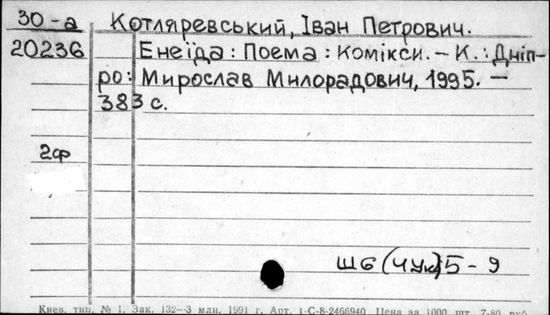 30-а Котляревський, Іван Петрович.
20236 Енеїда : Поема : Комікси. – К. : Дніп-
ро : Мирослав Милорадович, 1995. –
383 с.
2ф
Ш6(4Ук)5-9
Киев, тип. № 1, Зак. 132—3 млн. 1991 г. Арт. 1-С-8-2466940. Цена за 1000 шт. 7-80 руб.